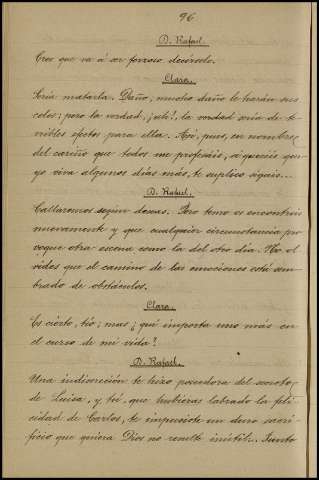 96
D. Rafael.
Creo que va á ser forzoso decírselo.
Clara.
Sería matarla. Daño, mucho daño le harán sus
celos; pero la verdad, ¡uh!, la verdad sería de te-
rribles efectos para ella. Así, pues, en nombre
del cariño que todos me profesáis, si queréis que
yo viva algunos días más, te suplico sigáis...
D. Rafael.
Callaremos según deseas. Pero temo os encontréis
nuevamente y que cualquier circunstancia pro-
voque otra escena como la del otro día. No ol-
vides que el camino de las emociones está sem-
brado de obstáculos.
Clara.
Es cierto, tío; mas ¡qué importa uno más en
el curso de mi vida!
D. Rafael.
Una indiscreción te hizo poseedora del secreto
de Luisa, y tú, que hubieras labrado la feli-
cidad de Carlos, te impusiste un duro sacri-
ficio que quiera Dios no resulte inútil... Junto